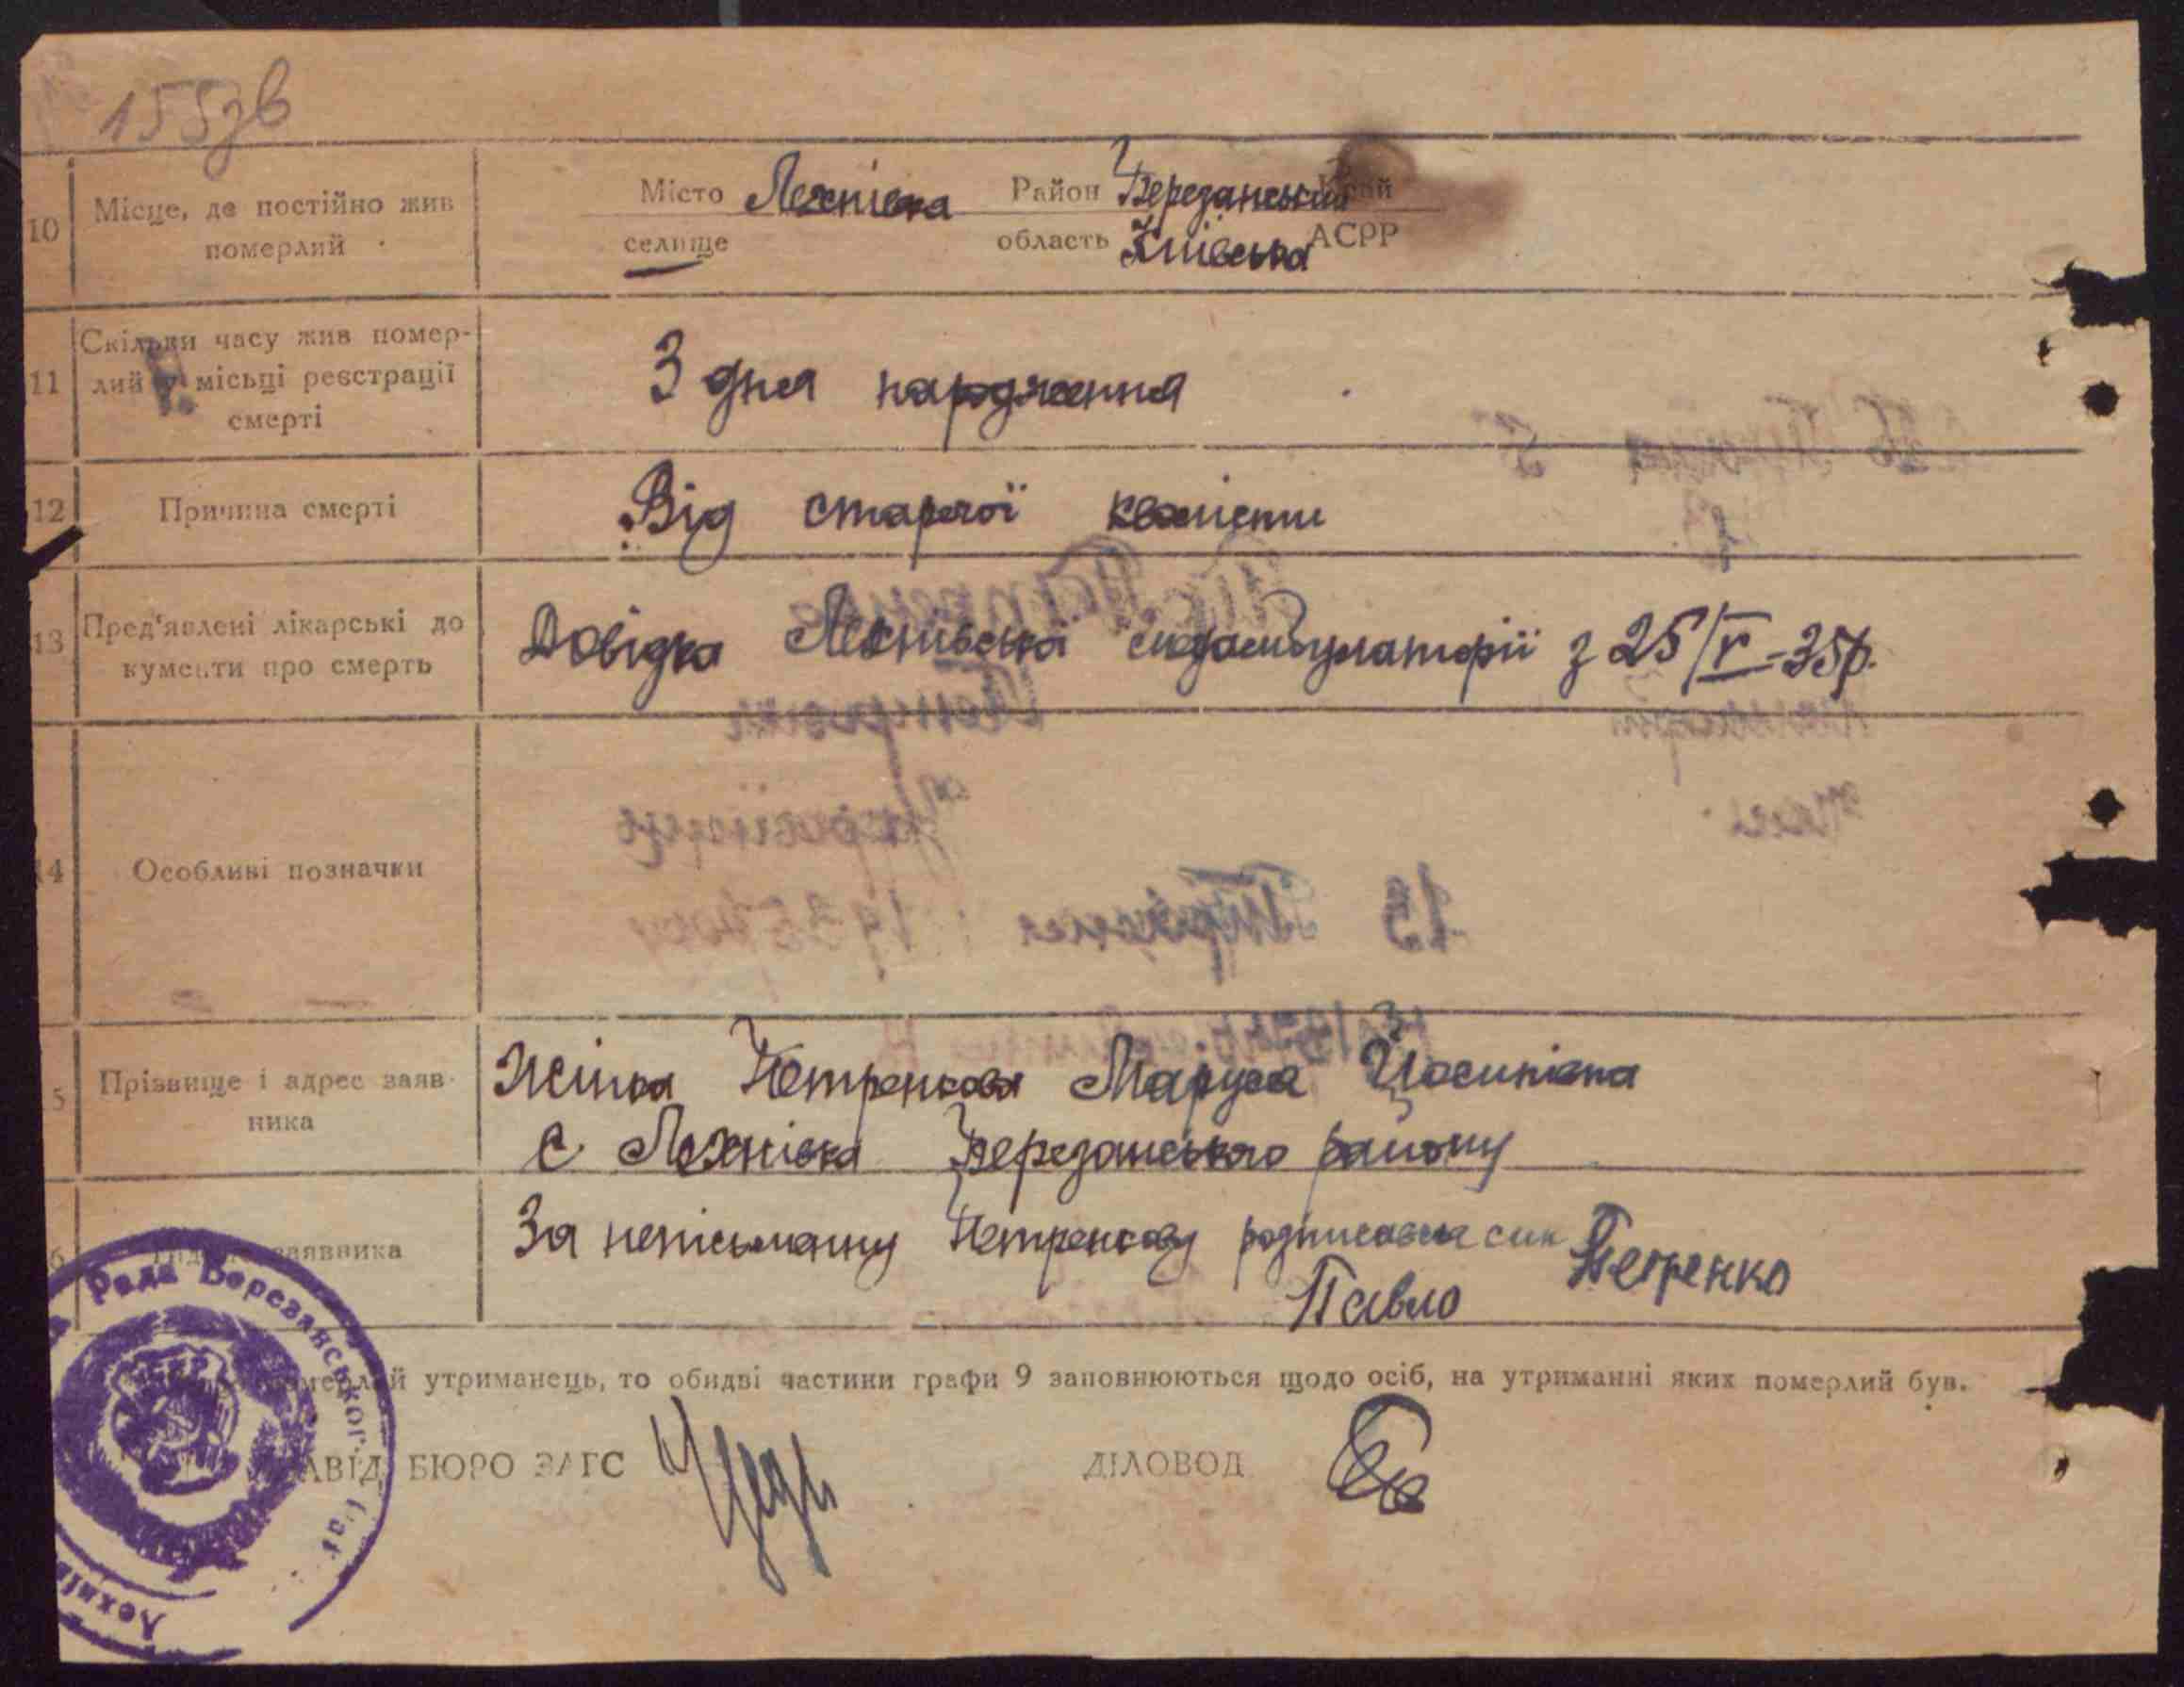 155зв
10 Місце, де постійно жив померлий
Місто Лехнівка Район Березанський Край
селище область Київська АСРР
11 Скільки часу жив помер-
лий у місьці реєстрації
смерті
З дня народження
12 Причина смерті
Від старчої кволисти
13 Пред'явлені лікарські до
кументи про смерть
Довідка Лехнівська з 25/V-35р.
14 Особливі позначки
5 Прізвище і адрес заяв-
ника
Жінка Петренкова Маруся Йосипівна
с. Лехнівка Березанського району
6 заявника
За неписьменну Петренкову розписався син Петренко
Павло
померлий утриманець, то обидві частини графи 9 заповнюються щодо осіб, на утриманні яких померлий був.
ЗАВІД БЮРО ЗАГС ДІЛОВОД
Рада Березанського
Лехнів